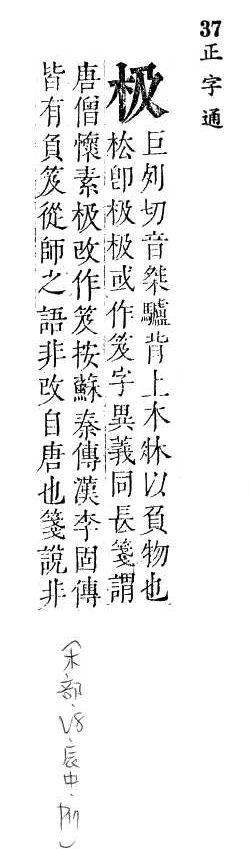 37正字通
极 巨列切音桀驢背上木牀以負物也
松卽极极或作笈字異義同長箋謂
唐僧懷素极改作笈按蘇秦傳漢李固傳
皆有負笈從師之語非改自唐也箋說非
(木部、V8、辰中、)